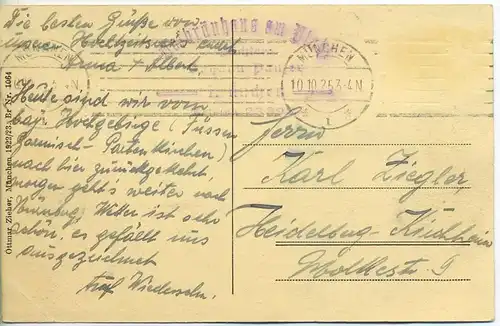 Die besten Grüße von
unserer Hochzeitsreise
Anna + Albert
Heute sind wir vom
bayr. Hochgebirge (Füssen
Garmisch - Partenkirchen)
nach hier zurückgekehrt,
morgen geht's weiter nach
Nürnberg. Wetter ist sehr
schön, es gefällt uns
ausgezeichnet
Auf Wiedersehn.
Ottmar Zieher, München 1922/23. Br Nr. 1064
bräuhaus am Pl
MÜNCHEN
MÜNCHEN
10.10.25.3-4N
Herrn
Karl Ziegler,
Heidelberg-Kirchheim
Moltkestr. 9